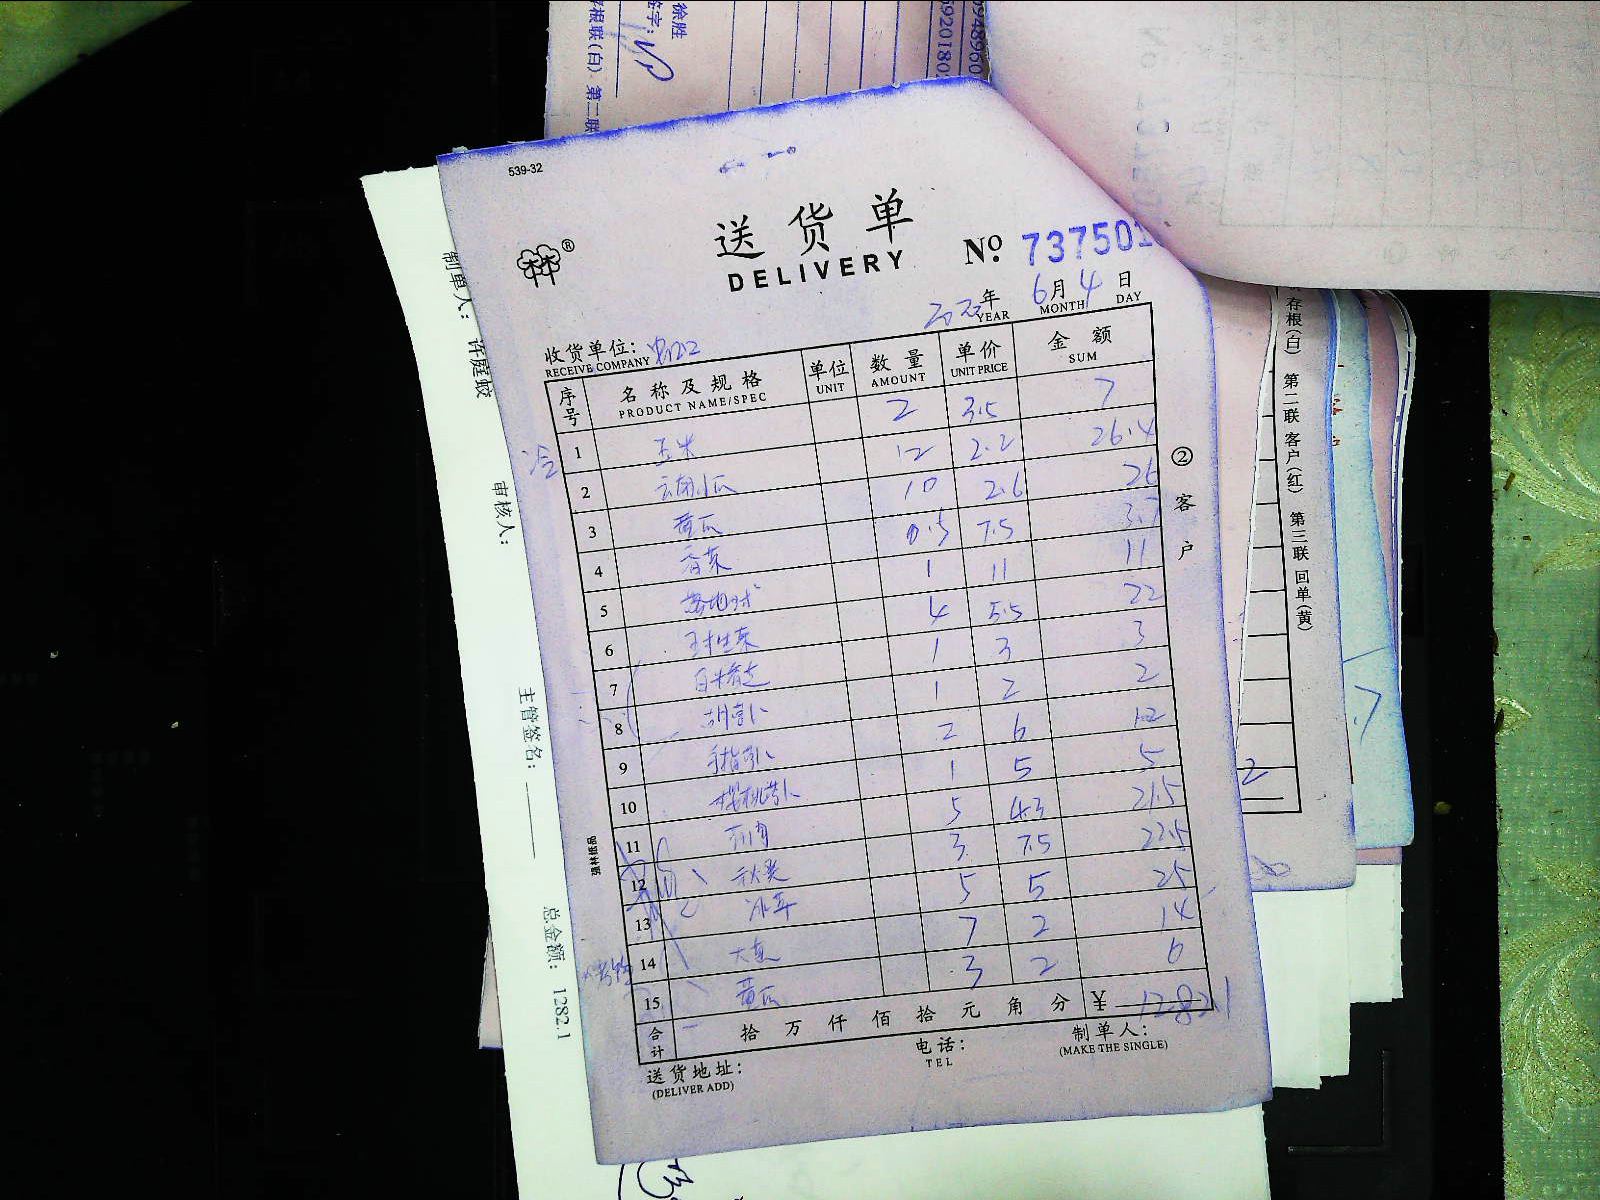 徐胜
签字:
存根联(白) 第二联
5920180
5948960
539-32
送货单
DELIVERY
№ 737501
6月4日
年
YEAR MONTH DAY
收货单位:
RECEIVE COMPANY
序号 名称及规格 单位 数量 单价 金额
PRODUCT NAME/SPEC UNIT AMOUNT UNIT PRICE SUM
冷
1 玉米 2 3.5 7
2 12 2.2 26.4
3 黄瓜 10 2.6 26
4 香菜 0.5 7.5 3.7
5 1 11 11
6 4 5.5 22
7 1 3 3
8 胡萝卜 1 2 2
9 手指萝卜 2 6 12
10 樱桃萝卜 1 5 5
11 5 4.3 21.5
12 秋葵 3 7.5 22.5
13 冰草 5 5 25
14 大葱 7 2 14
15 黄瓜 3 2 6
合计 拾万仟佰拾元角分 ¥ 1282.1
送货地址:
(DELIVER ADD)
电话:
TEL
制单人:
(MAKE THE SINGLE)
② 客户
强林纸品
制单人: 许庭蛟
审核人:
主管签名:
总金额: 1282.1
存根(白) 第二联 客户(红) 第三联 回单(黄)
2
.7